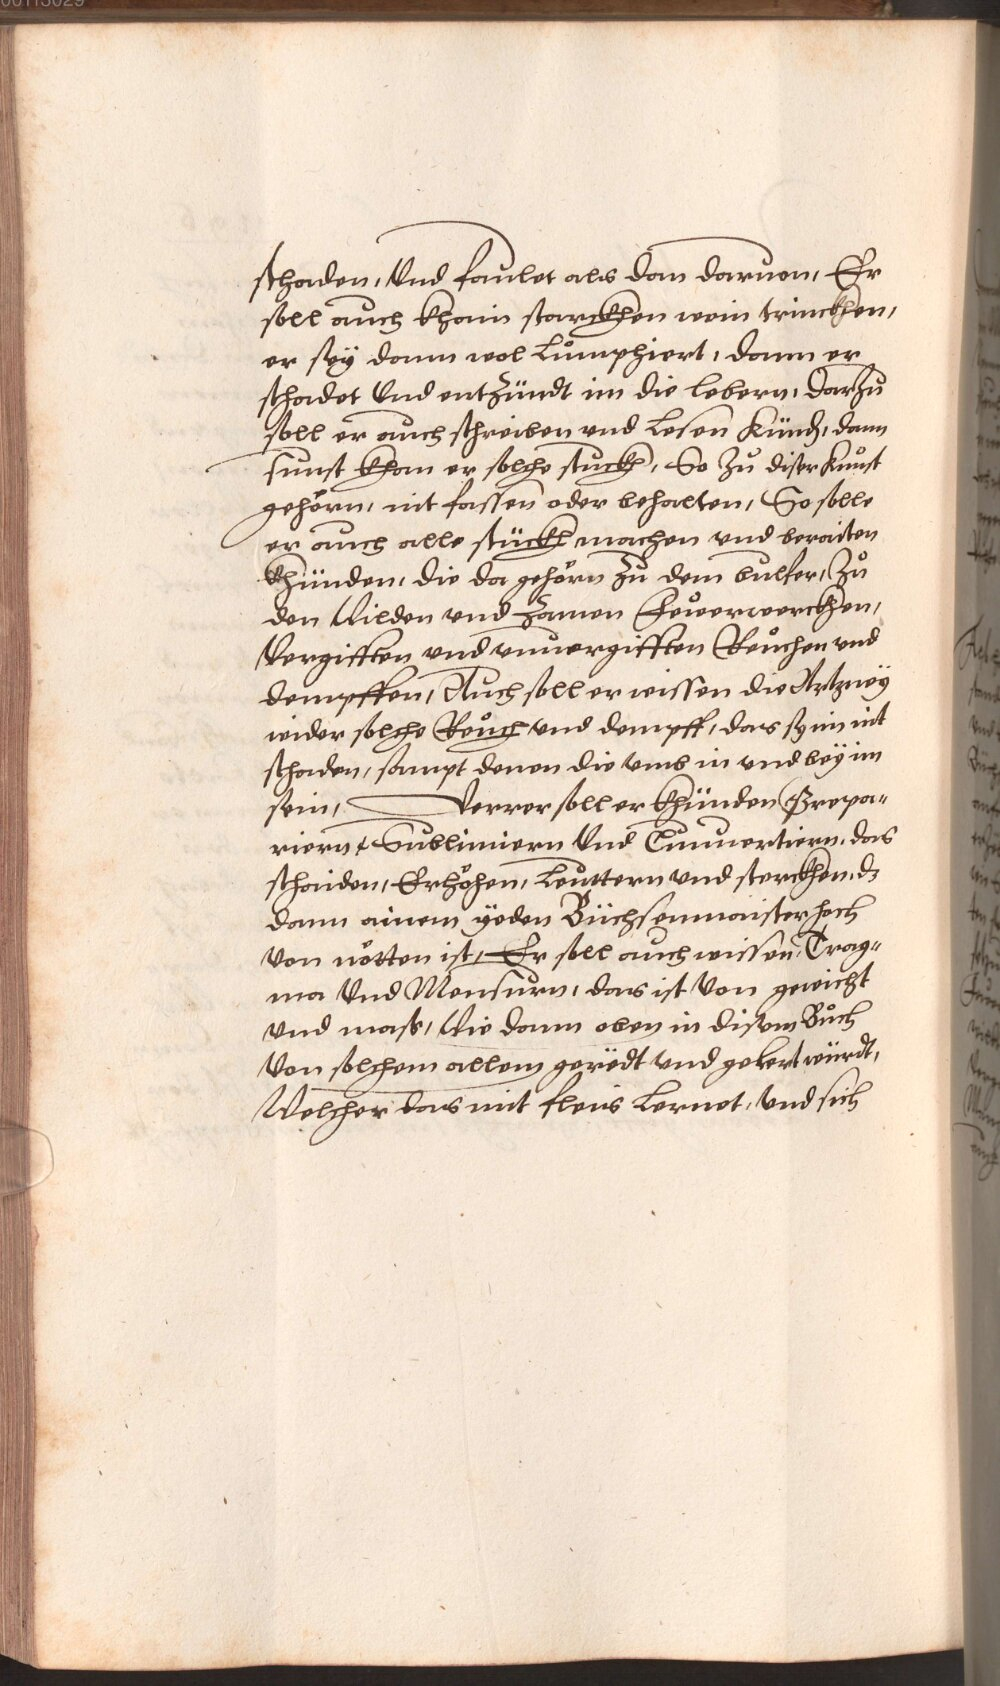 schaden, Vnd faulet als dan daruon, Er
soll auch khain starckhen wein trinckhen,
er seÿ dann wol Lümphiert, dann er
schadet Vnd entzündt im die lebern, darzu
soll er auch schreiben vnd Lesen Künd, dann
sunst khan er solche stuckh, So Zu diser Kunst
gehörn, nit fassen oder behalten, So solle
er auch alle stückh machen vnd beraiten
khünden, die da gehörn Zu dem bulfer, Zu
den Wilden vnd Zamen Feüerwerckhen,
Vergifften vnd vnuergifften Reuchen vnd
dempffen, Auch soll er wissen die Artzneÿ
wider solche Reuch vnd dempff, das sy im nit
schaden, sampt denen die vmb in vnd beÿ im
sein, Verrer soll er khünden Prepa-
riern, Sublimiern Vnd Cunuertiern, das
schaiden, Erhöhen, Leuttern vnd sterckhen, dz
dann ainem ÿeden Büchsenmaister hoch
von nötten ist, Er soll auch wissen Trag-
ma Vnd Mensurn, das ist Von gewicht
vnd mass, Wie dann oben in disem Buch
Von solchem allem geredt vnd gelert würdt,
Welcher das mit fleis Lernet, vnd sich